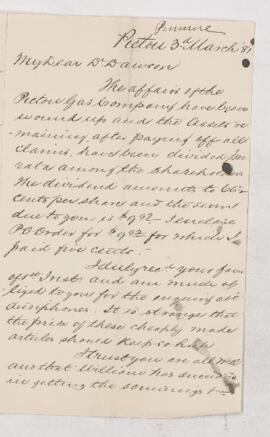 Pictou 3d March '8
My dear Dr Dawson
The affairs of the
Pictou Gas Company have been
wound up and the Assets re-
maining after paying off all
Claims, have been divided pro
rata among the shareholders
The dividend amounts to 66
cents per share and the sum
due to you is $9.92 - I enclose
PO Order for $9.92 for which I
paid five cents. -
I duly recd yours favour
of Inst and am much ob-
liged to you for the enquiry abt
Audiphones. It is strange that
the price of these cheaply made
articles should keep so high
I trust you are all well
and that William has succeeded
in getting the soundings